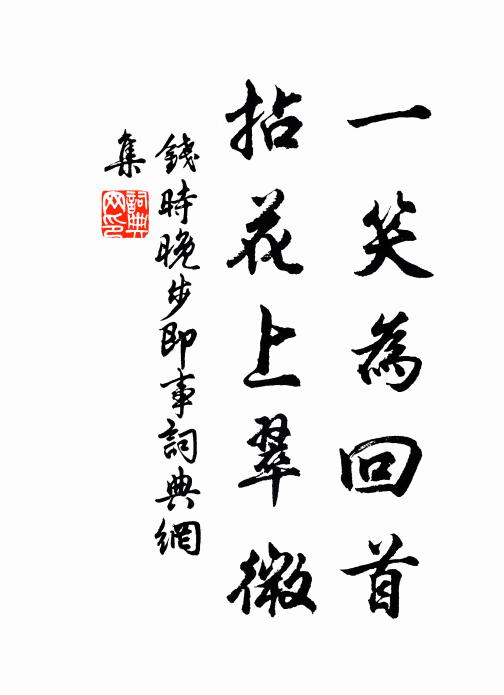 一笑為回首
拈花上翠微
錢時晚步即事詞典網
集
詞典
网印